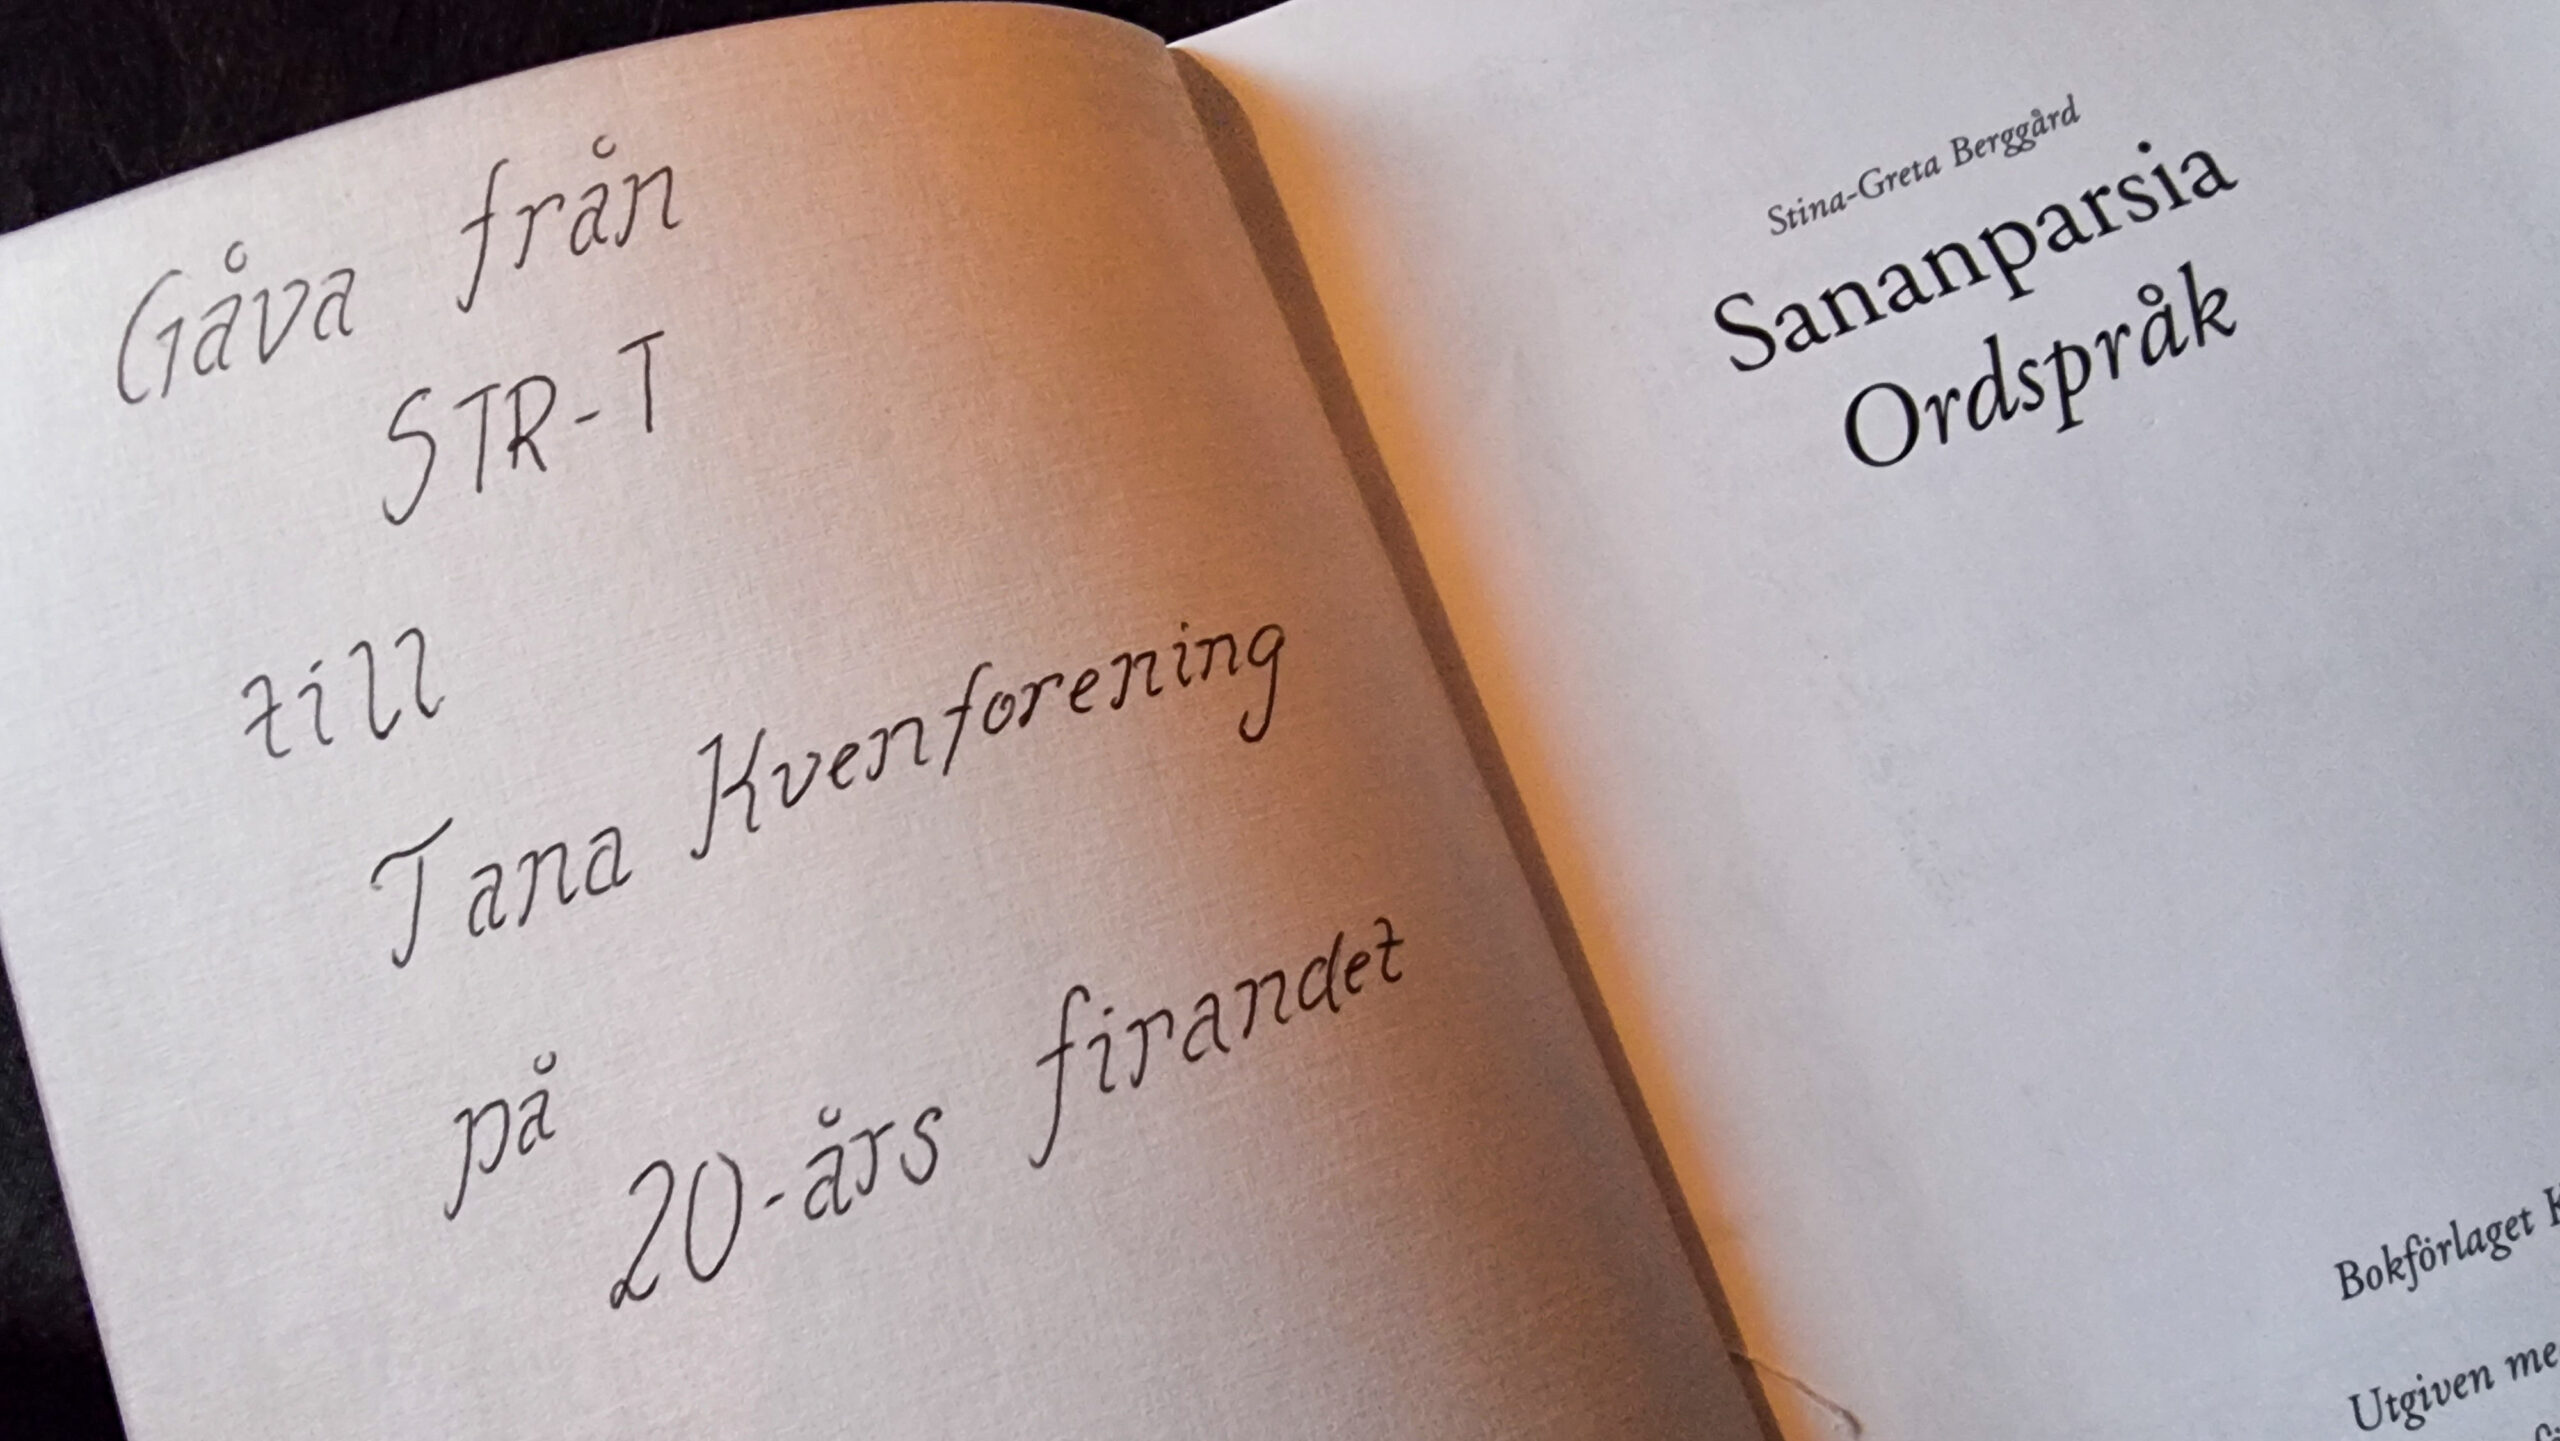 Gåva från
STR-T
till
Tana Kvenforening
på
20-års firandet
Stina-Greta Berggård
Sananparsia
Ordspråk
Bokförlaget
Utgiven